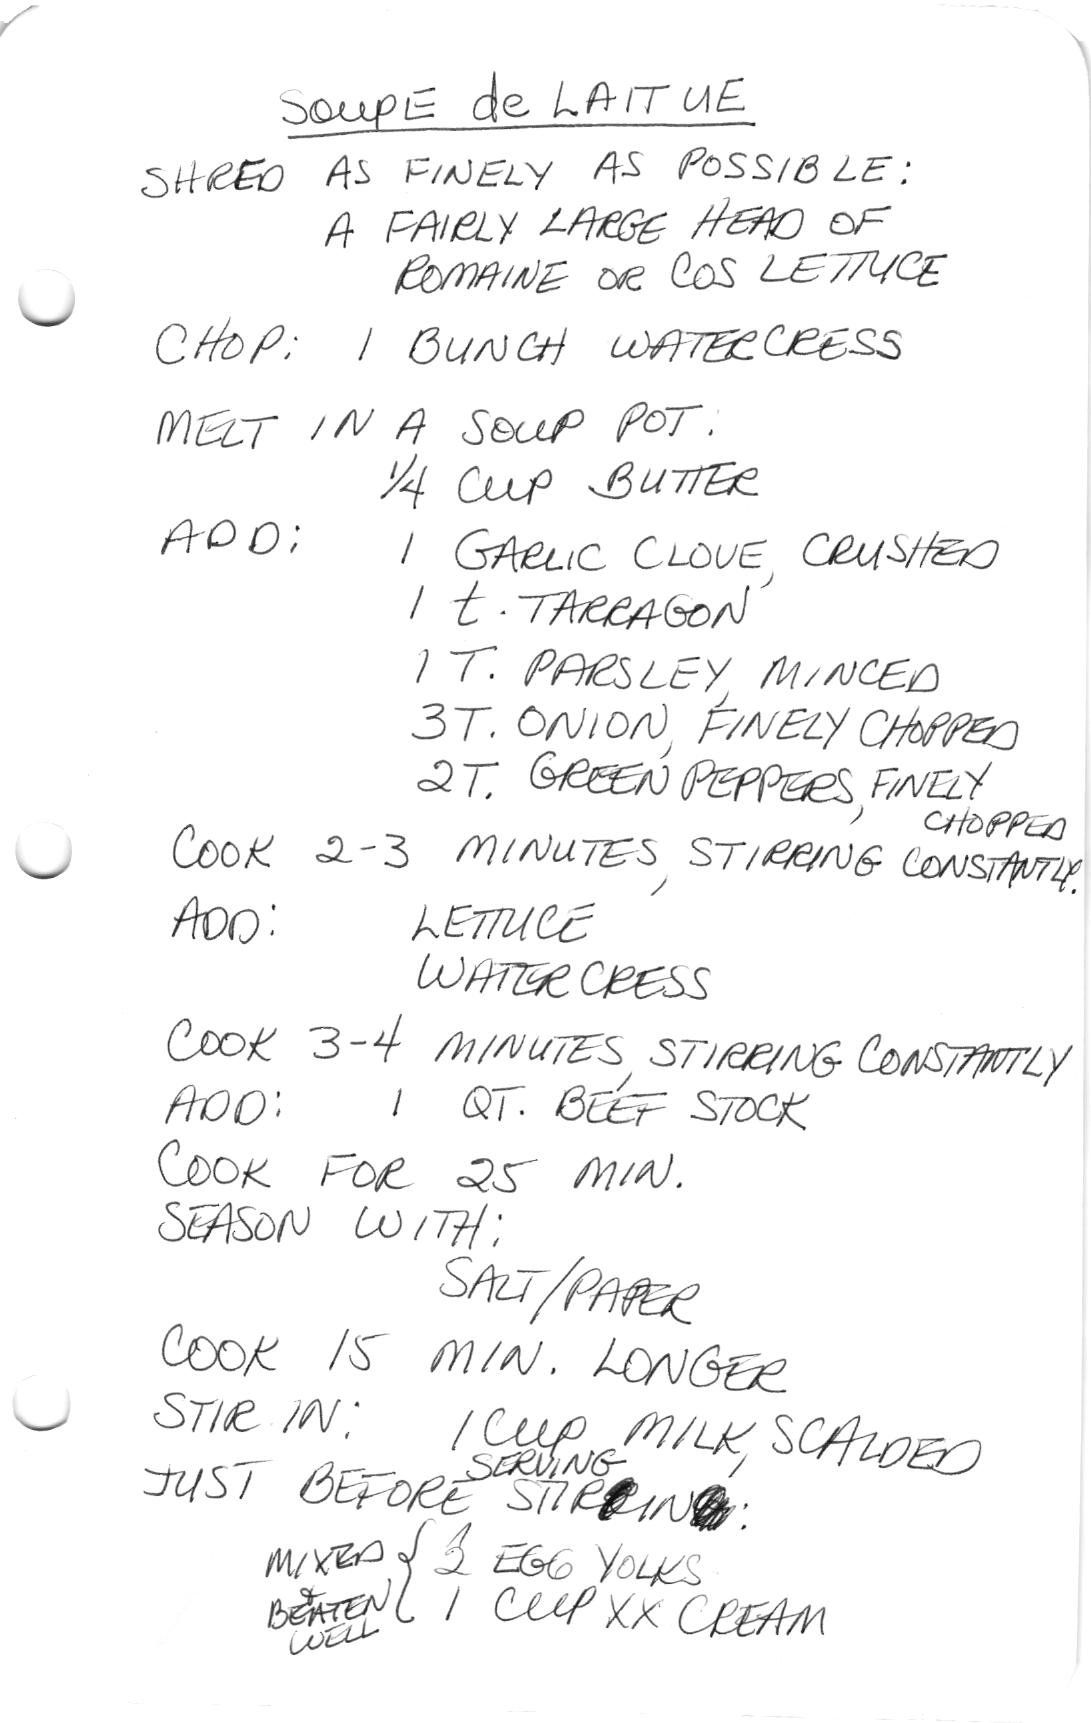 SOUPE de LAITUE
SHRED AS FINELY AS POSSIBLE:
A FAIRLY LARGE HEAD OF
ROMAINE OR COS LETTUCE
CHOP: 1 BUNCH WATERCRESS
MELT IN A SOUP POT:
1/4 CUP BUTTER
ADD: 1 GARLIC CLOVE, CRUSHED
1 t. TARRAGON
1 T. PARSLEY, MINCED
3 T. ONION, FINELY CHOPPED
2 T. GREEN PEPPERS, FINELY
CHOPPED
COOK 2-3 MINUTES, STIRRING CONSTANTLY.
ADD: LETTUCE
WATERCRESS
COOK 3-4 MINUTES, STIRRING CONSTANTLY
ADD: 1 QT. BEEF STOCK
COOK FOR 25 MIN.
SEASON WITH:
SALT/PAPER
COOK 15 MIN. LONGER
STIR IN: 1 CUP MILK, SCALDED
SERVING
JUST BEFORE STIR IN:
MIXED { EGG YOLKS
& BEATEN { 1 CUP XX CREAM
WELL